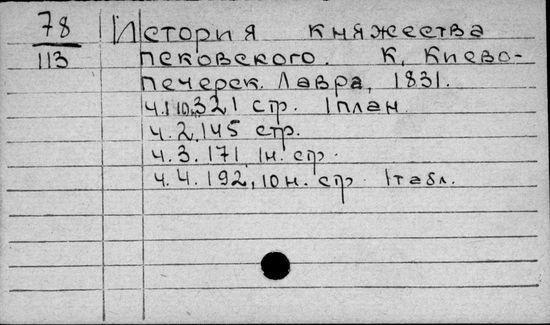 78 История княжества
113 псковского. К, Киево-
печерск. Лавра, 1831.
ч.1 10,321 стр. 1план.
ч.2.145 стр.
ч.3.171, 1н. стр.
ч.4.192, 10н. стр 1табл.